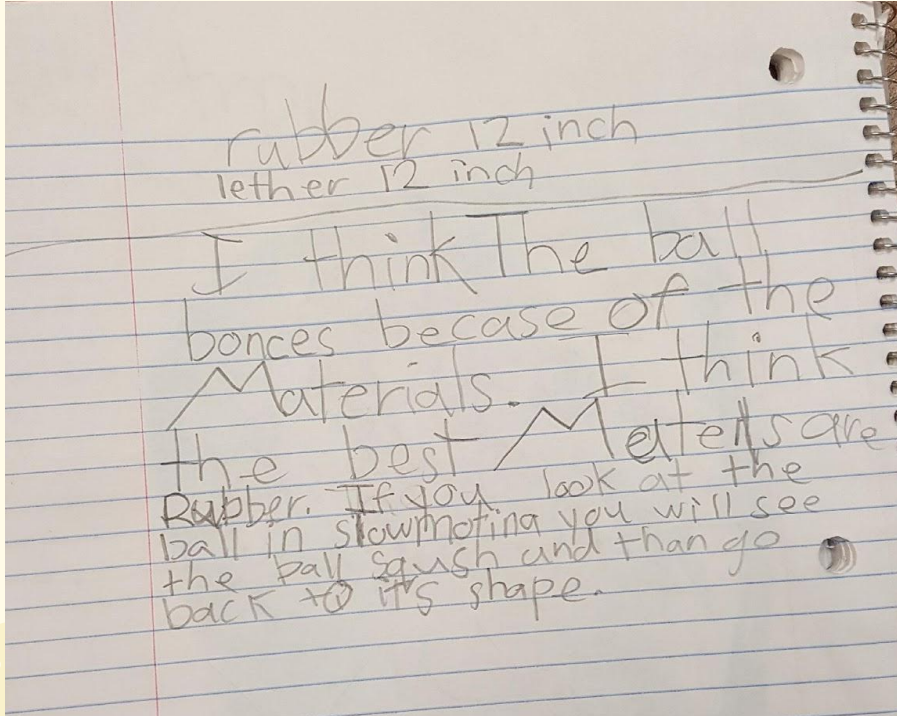 rubber 12 inch
lether 12 inch
I think The ball
bonces becase of the
Materials. I think
the best Matells are
Rubber. If you look at the
ball in slowmotina you will see
the ball sqush and than go
back to it's shape.